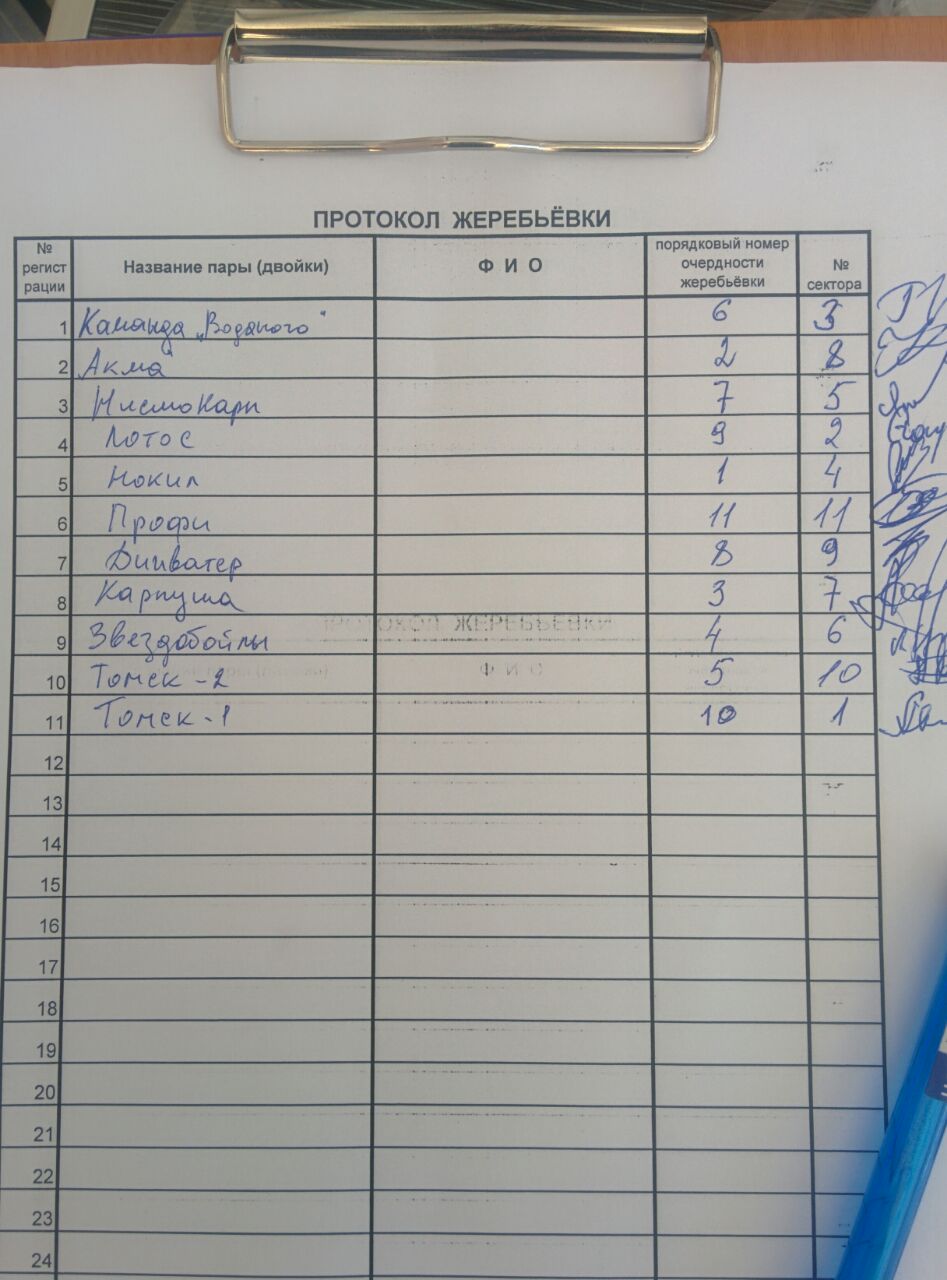 ПРОТОКОЛ ЖЕРЕБЬЁВКИ
№ регист рации Название пары (двойки) Ф И О порядковый номер очердности жеребьёвки № сектора
1 Команда „Водяного" 6 3
2 Акма 2 8
3 НисмоКарп 7 5
4 Лотос 9 2
5 Нокил 1 4
6 Профи 11 11
7 Дипватер 8 9
8 Карпуша 3 7
9 Звездобойлы 4 6
10 Томск-2 5 10
11 Томск-1 10 1
12
13
14
15
16
17
18
19
20
21
22
23
24